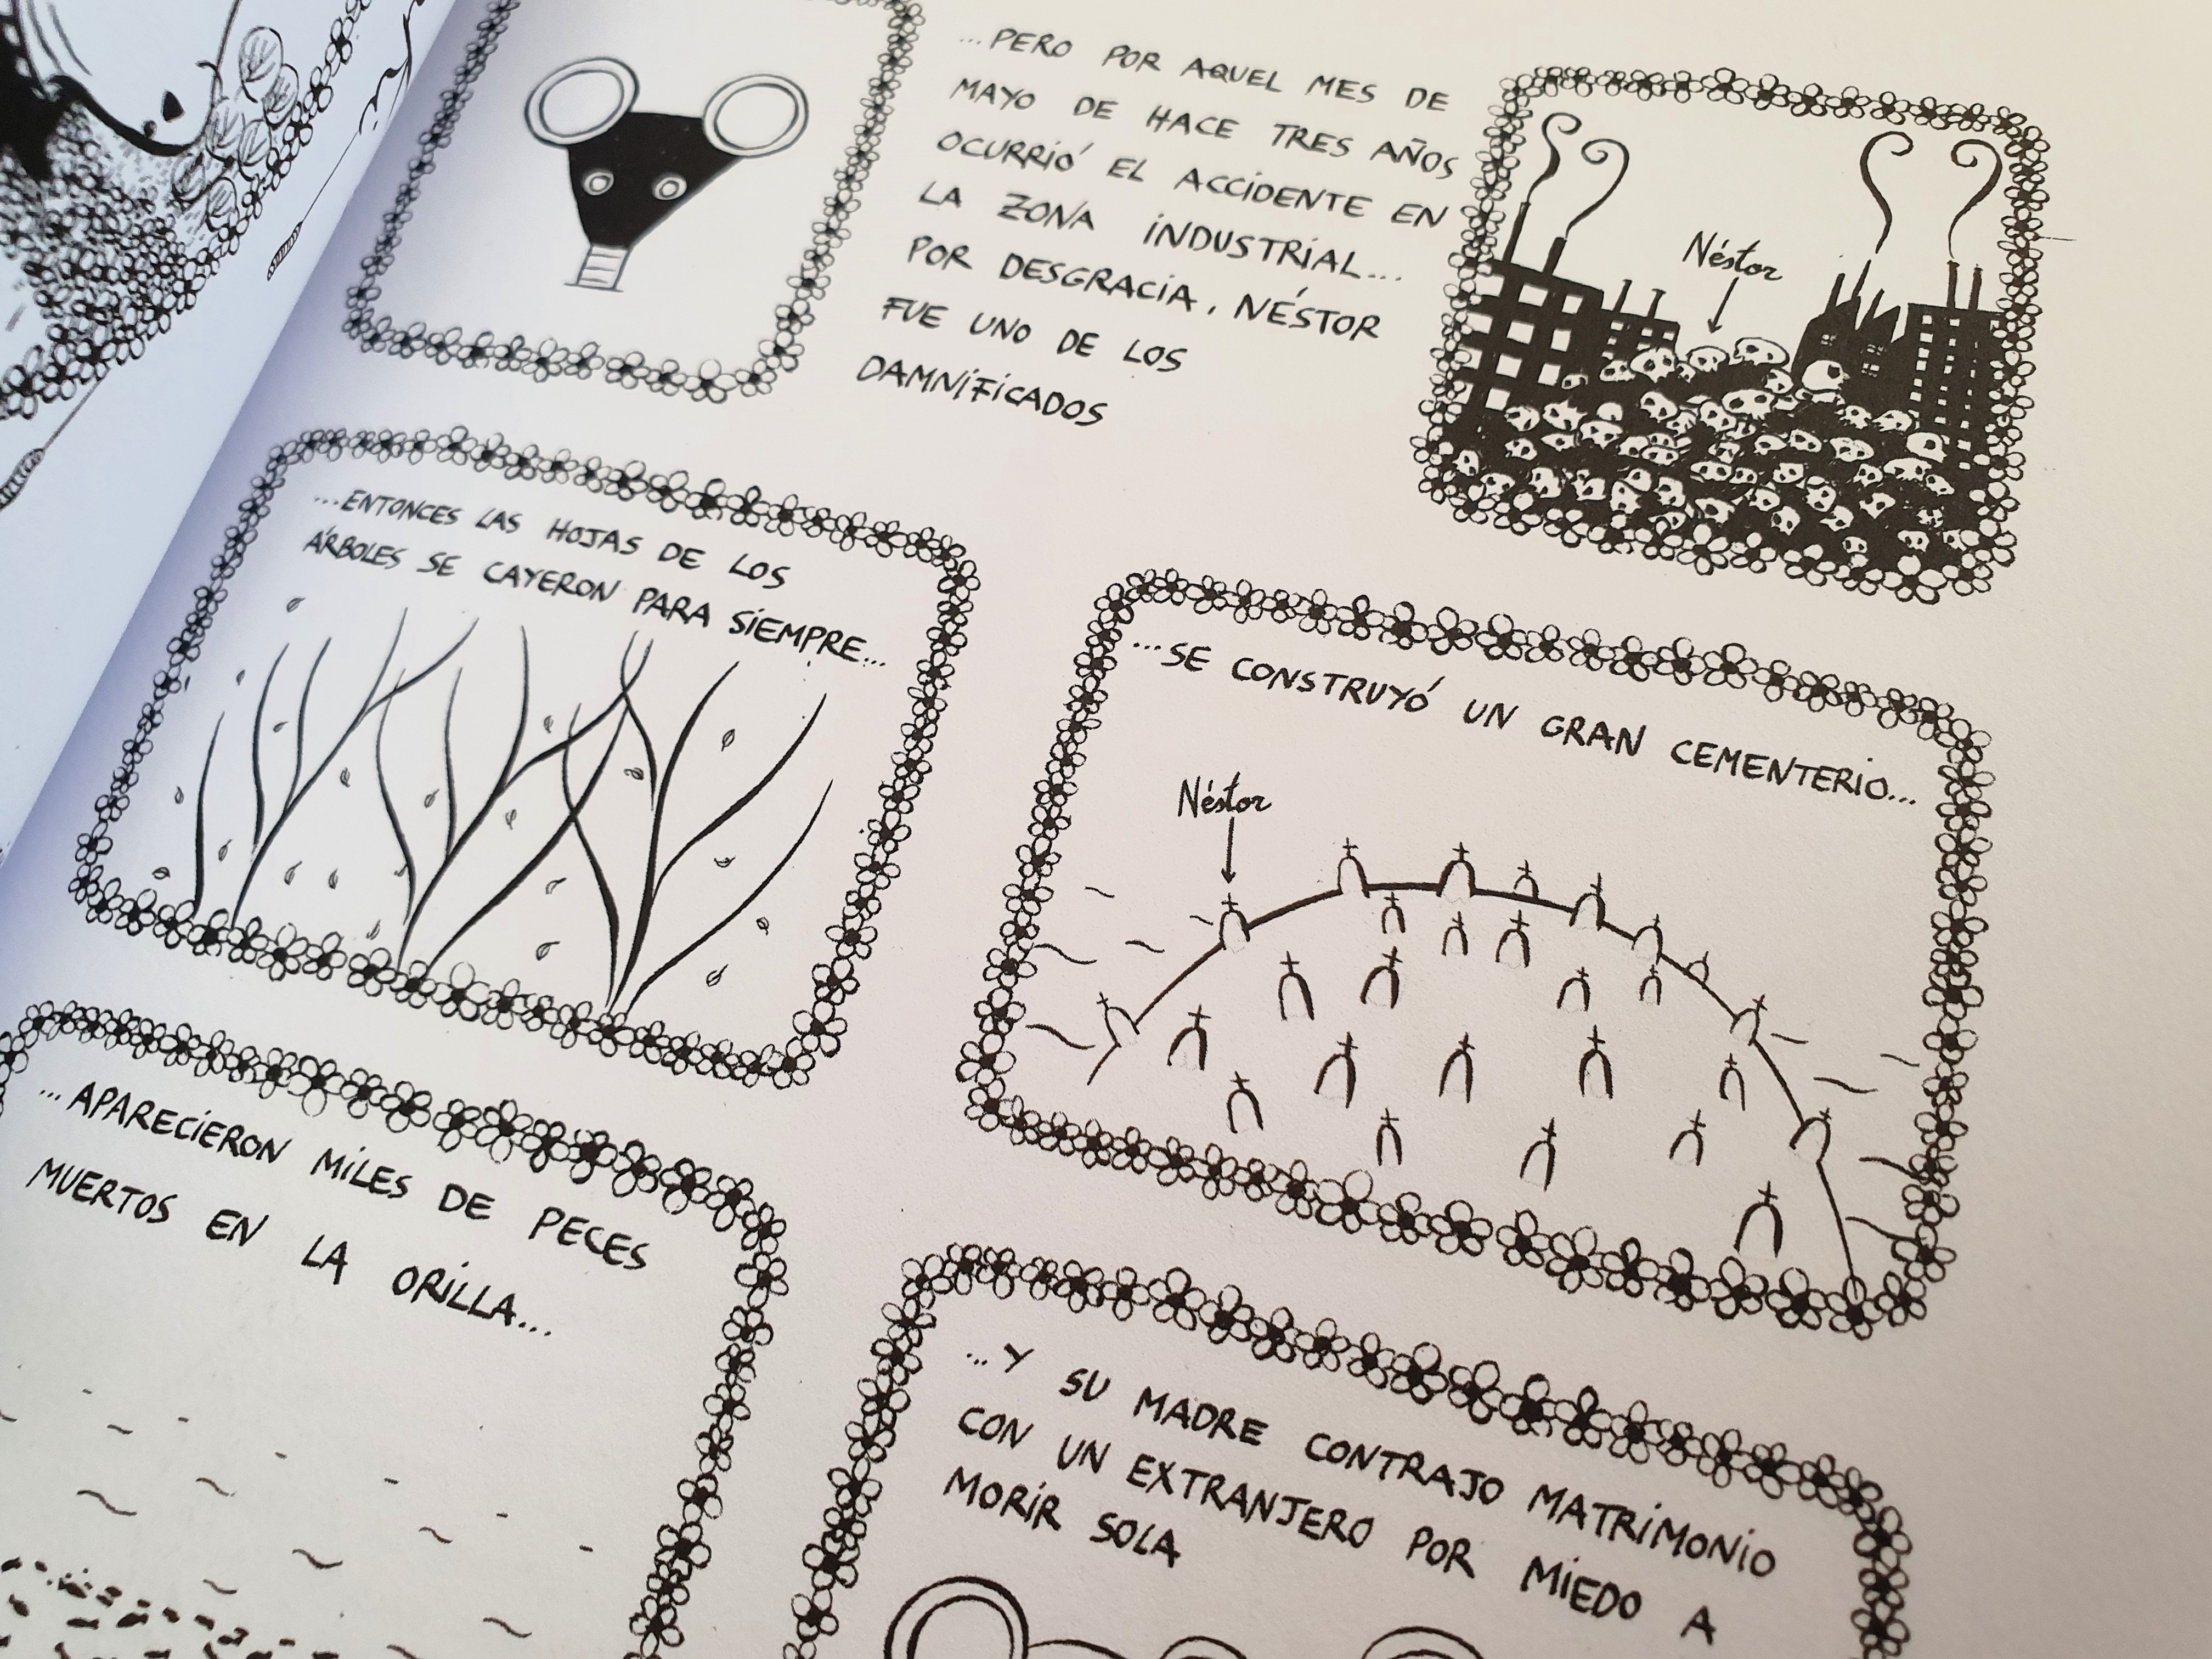 ...PERO POR AQUEL MES DE
MAYO DE HACE TRES AÑOS
OCURRIÓ EL ACCIDENTE EN
LA ZONA INDUSTRIAL...
POR DESGRACIA, NÉSTOR
FUE UNO DE LOS
DAMNIFICADOS
Néstor
...ENTONCES LAS HOJAS DE LOS
ÁRBOLES SE CAYERON PARA SIEMPRE...
...SE CONSTRUYÓ UN GRAN CEMENTERIO...
Néstor
...APARECIERON MILES DE PECES
MUERTOS EN LA ORILLA...
...Y SU MADRE CONTRAJO MATRIMONIO
CON UN EXTRANJERO POR MIEDO A
MORIR SOLA